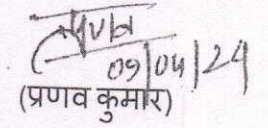 09/04/24
(प्रणव कुमार)